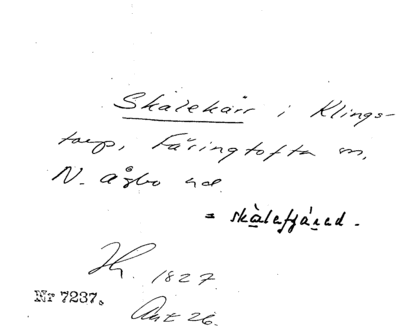 Skålekärr i Klings-
torp, Färingtofta sn,
N. Åsbo hd.
= skàlafjárad.
Ih. 1827.
Nr 7237.
Ant 26.